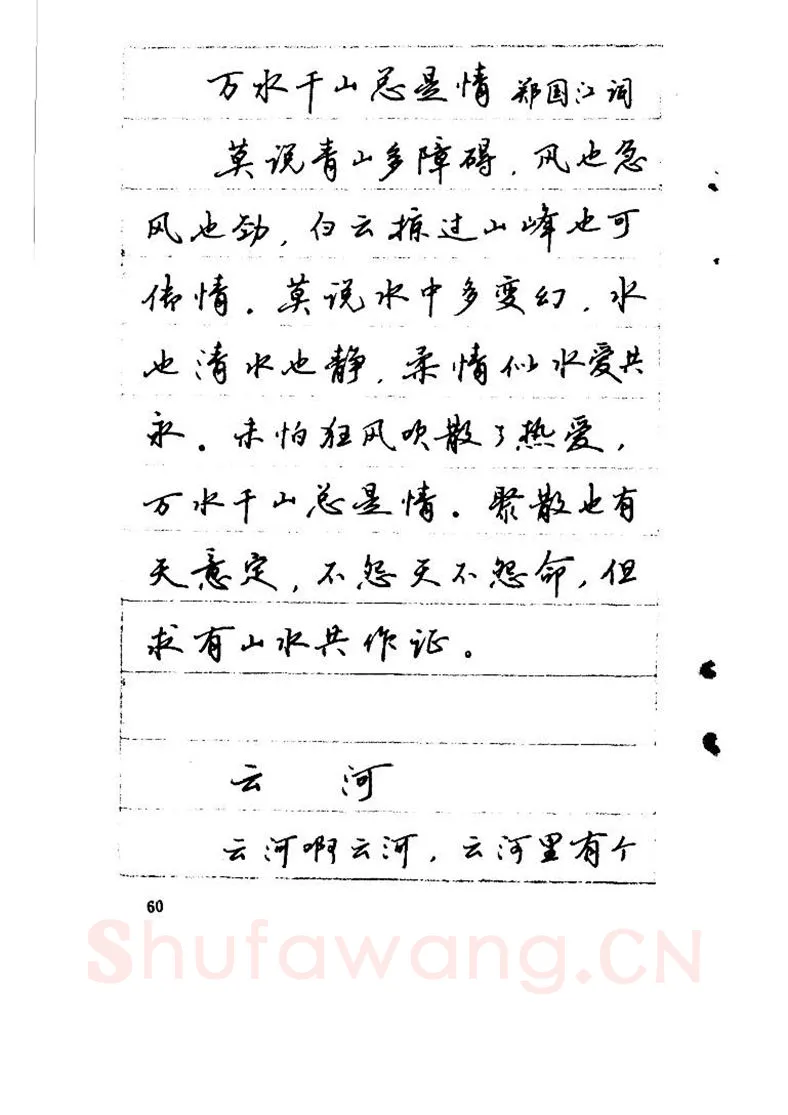 万水千山总是情 郑国江词
莫说青山多障碍，风也急
风也劲，白云掠过山峰也可
传情。莫说水中多变幻，水
也清水也静，柔情似水爱共
永。未怕狂风吹散了热爱，
万水千山总是情。聚散也有
天意定，不怨天不怨命，但
求有山水共作证。
云 河
云河啊云河，云河里有个
60
Shufawang.CN